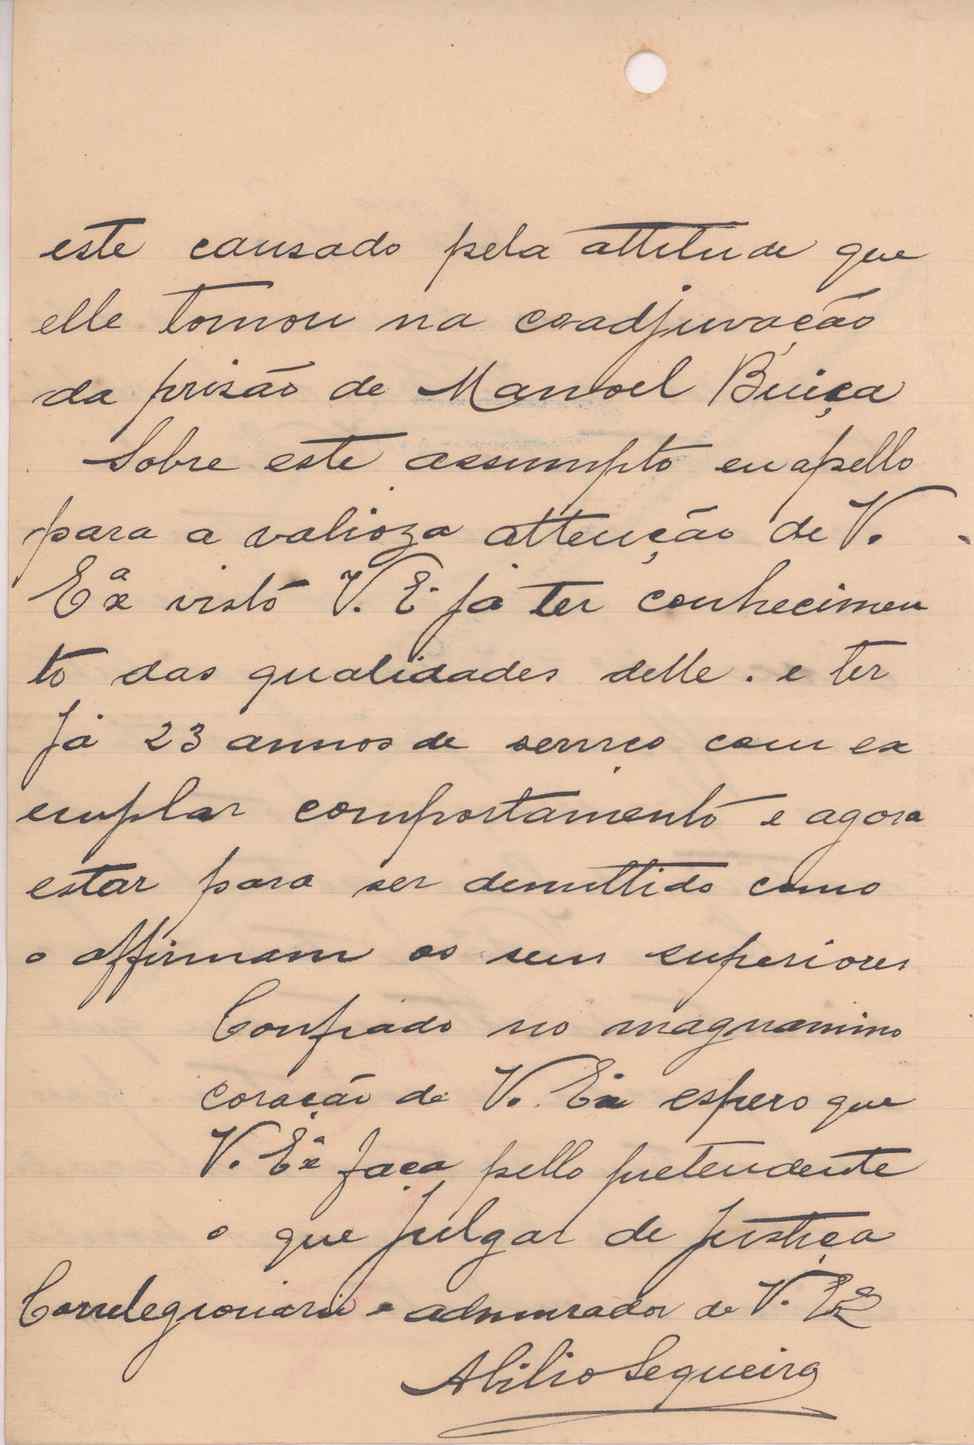 este causado pela attitude que
elle tomou na coadjuvação
da prizão de Manoel Buiça
Sobre este assumpto eu apello
para a valioza attenção de V.
Exª visto V. E. já ter conhecimen
to das qualidades delle. e ter
já 23 annos de serviço com ex
emplar comportamento e agora
estar para ser demittido como
o affirmam os seus superiores
Confiado no magnanimo
coração de V. Exª espero que
V. Exª faça pello pretendente
o que julgar de justiça
Correlegionario e admirador de V. Exª
Abilio Sequeira